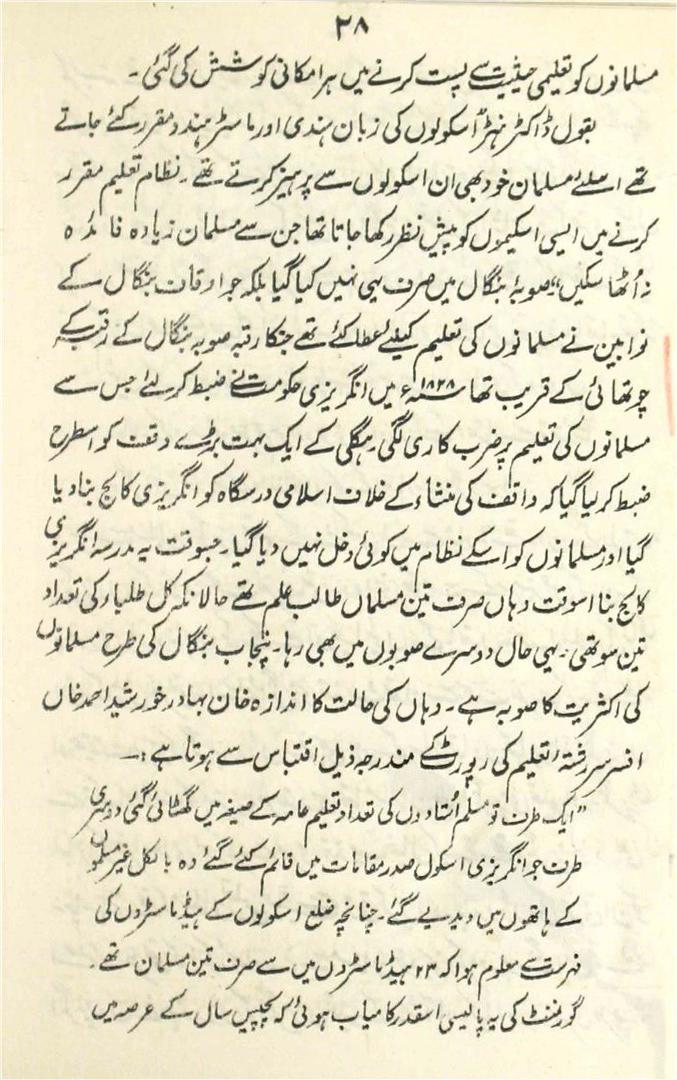 ۲۸
مسلمانوں کو تعلیمی حیثیت سے پست کرنے میں ہر امکانی کوشش کی گئی۔
بقول ڈاکٹر ہنٹر اسکولوں کی زبان ہندی اور ماسٹر ہندو مقرر کئے جاتے
تھے اسلئے مسلمان خود بھی ان اسکولوں سے پرہیز کرتے تھے۔ نظام تعلیم مقرر
کرنے میں ایسی اسکیموں کو پیش نظر رکھا جاتا تھا جن سے مسلمان زیادہ فائدہ
نہ اُٹھا سکیں"، صوبۂ بنگال میں صرف یہی نہیں کیا گیا بلکہ جو اوقاف بنگال کے
نوابین نے مسلمانوں کی تعلیم کیلئے عطا کئے تھے جنکا رقبہ صوبہ بنگال کے رقبہ کے
چوتھائی کے قریب تھا ۱۸۲۸ء میں انگریزی حکومت نے ضبط کر لئے جس سے
مسلمانوں کی تعلیم پر ضرب کاری لگی۔ ہگلی کے ایک بہت بڑے وقف کو اسطرح
ضبط کر لیا گیا کہ واقف کی منشاء کے خلاف اسلامی درسگاہ کو انگریزی کالج بنا دیا
گیا اور مسلمانوں کو اسکے نظام میں کوئی دخل نہیں دیا گیا۔ جسوقت یہ مدرسہ انگریزی
کالج بنا اسوقت وہاں صرف تین مسلمان طالب علم تھے حالانکہ کل طلباء کی تعداد
تین سو تھی۔ یہی حال دوسرے صوبوں میں بھی رہا۔ پنجاب بنگال کی طرح مسلمانوں
کی اکثریت کا صوبہ ہے۔ وہاں کی حالت کا اندازہ خان بہادر خورشید احمد خاں
افسر سررشتۂ تعلیم کی رپورٹ کے مندرجہ ذیل اقتباس سے ہوتا ہے :۔
"ایک طرف تو مسلم اُستادوں کی تعداد تعلیم عامہ کے صیغہ میں گھٹائی گئی دوسری
طرف جو انگریزی اسکول صدر مقامات میں قائم کئے گئے وہ بالکل غیر مسلموں
کے ہاتھوں میں دیدیے گئے۔ چنانچہ ضلع اسکولوں کے ہیڈ ماسٹروں کی
فہرست سے معلوم ہوا کہ ۲۳ ہیڈ ماسٹروں میں سے صرف تین مسلمان تھے۔
گورنمنٹ کی یہ پالیسی اسقدر کامیاب ہوئی کہ پچیس سال کے عرصہ میں